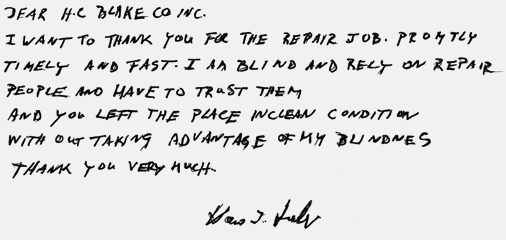 DEAR H.C BLAKE CO INC.
I WANT TO THANK YOU FOR THE REPAIR JOB. PROMTLY
TIMELY AND FAST. I AM BLIND AND RELY ON REPAIR
PEOPLE AND HAVE TO TRUST THEM
AND YOU LEFT THE PLACE IN CLEAN CONDITION
WITH OUT TAKING ADVANTAGE OF MY BLINDNES
THANK YOU VERY MUCH.